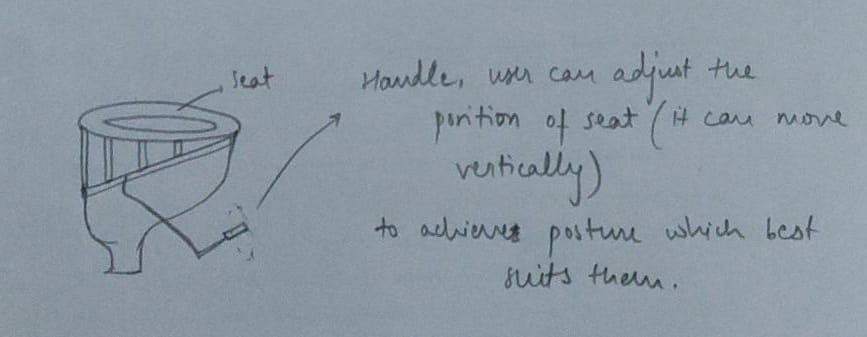 seat
Handle, user can adjust the
position of seat (it can move
vertically)
to achieve posture which best
suits them.